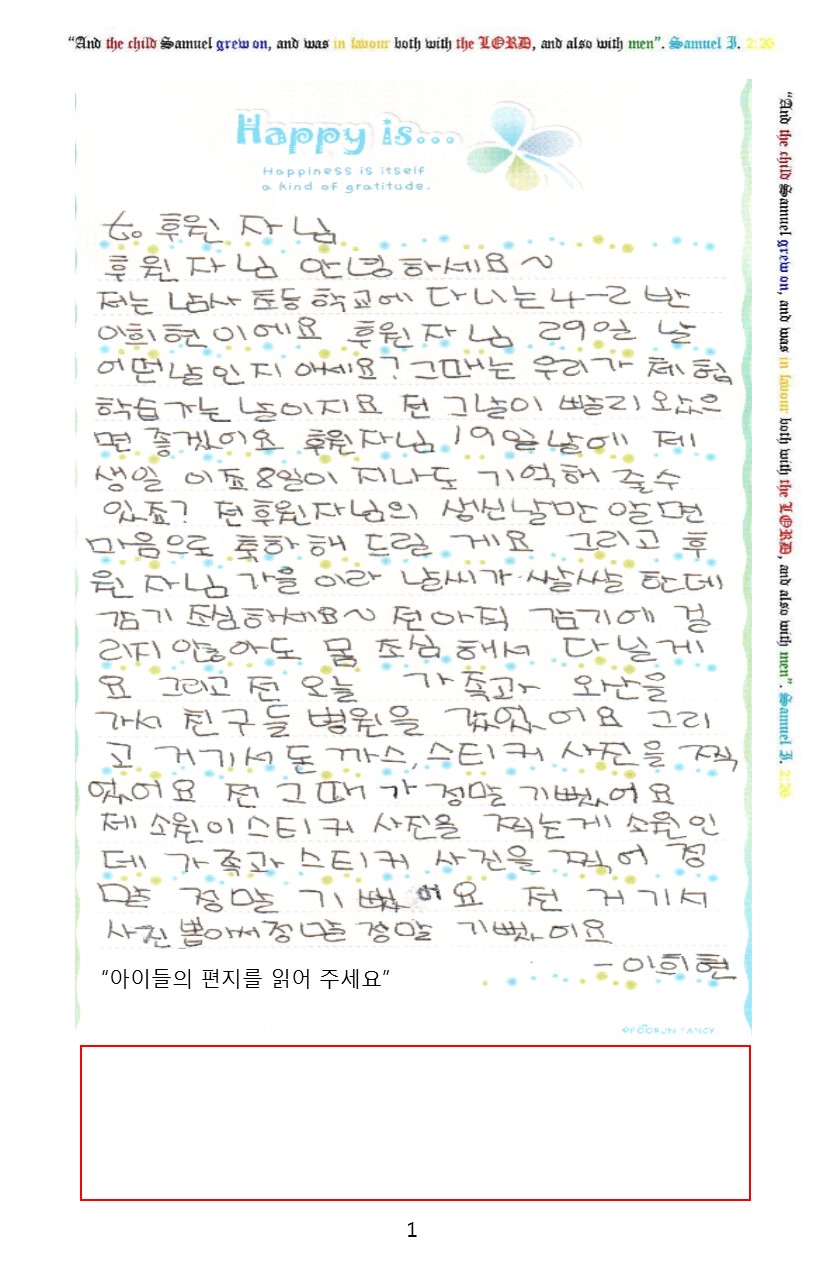 “And the child Samuel grew on, and was in favour both with the LORD, and also with men”. Samuel I. 2:26
“And the child Samuel grew on, and was in favour both with the LORD, and also with men”. Samuel I. 2:26
Happy is...
Happiness is itself
a kind of gratitude.
to 후원 자 님
후원 자 님 안녕하세요~
저는 남사 초등 학교에 다니는 4-2 반
이희현이에요 후원자님 29일 날
어떤날인지 아세요? 그때는 우리가 체험
학습가는 날이지요 전 그날이 빨리 왔으
면 좋겠어요 후원자님 19일날에 제
생일 이죠 8일이 지나도 기억해 줄수
있죠? 전 후원자님의 생신날만 알면
마음으로 축하해 드릴 게요 그리고 후
원 자님 가을 이라 날씨가 쌀쌀 한데
감기 조심하세요~ 전 아직 감기에 걸
리지 않아도 몸 조심 해서 다닐게
요 그리고 전 오늘 가족과 와산을
가서 친구들 병원을 갔었어요 그리
고 거기서 돈까스, 스티커 사진을 찍
었어요 전 그때가 정말 기뻤어요
제 소원이 스티커 사진을 찍는게 소원인
데 가족과 스티커 사진을 찍어 정
말 정말 기뻤어요 전 거기서
사진 뽑아서 정말 정말 기뻤어요
- 이희현
“아이들의 편지를 읽어 주세요”
©POORUN FANCY
1